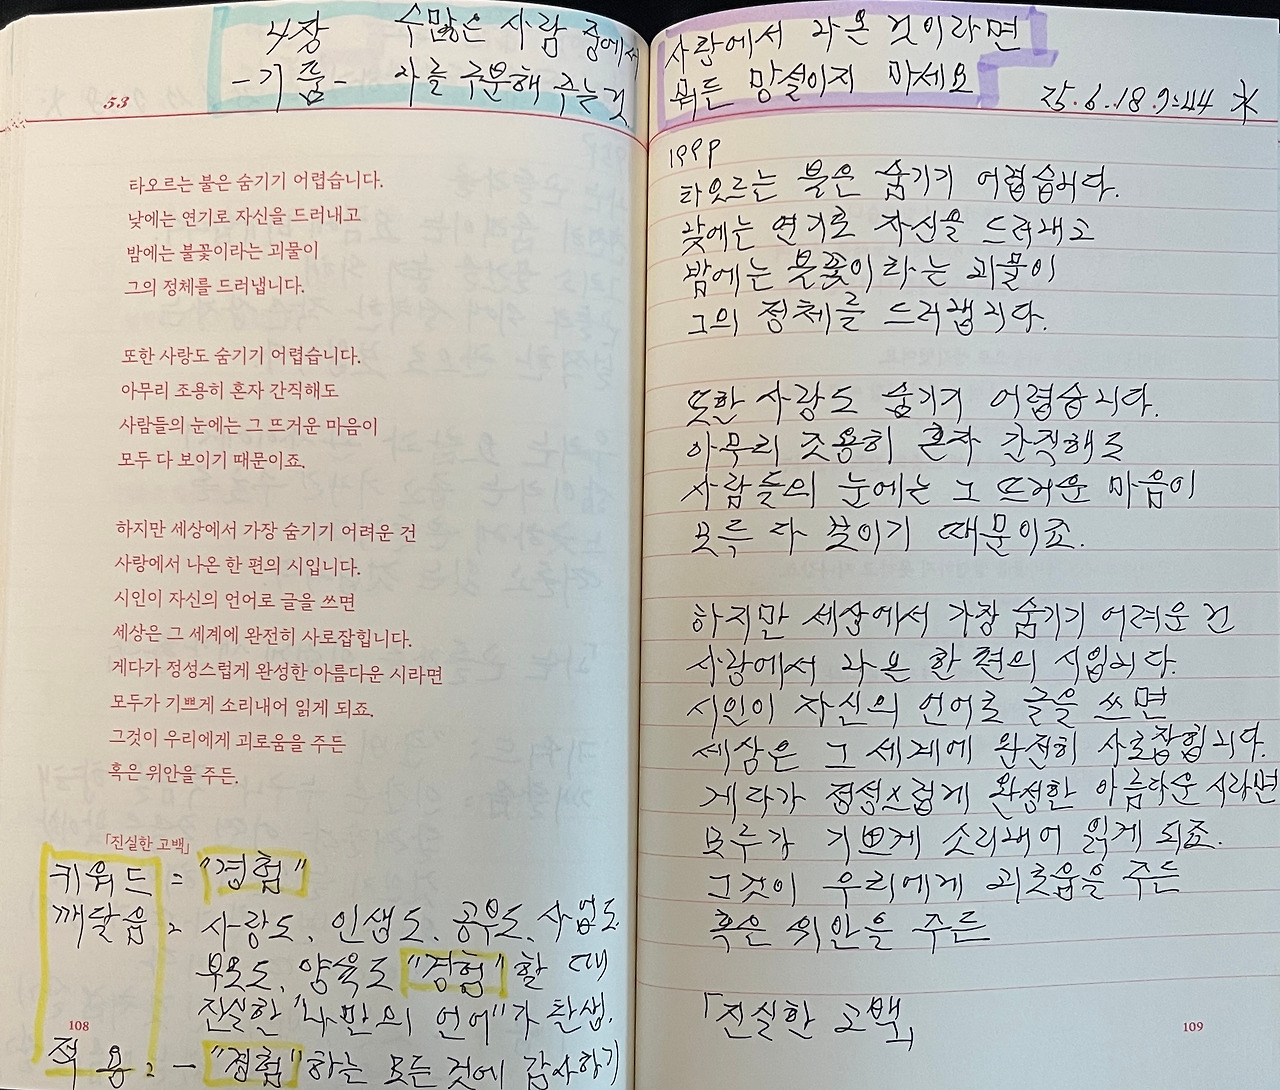 4장 수많은 사람 중에서
-기쁨- 나를 구분해 주는 것
53
타오르는 불은 숨기기 어렵습니다.
낮에는 연기로 자신을 드러내고
밤에는 불꽃이라는 괴물이
그의 정체를 드러냅니다.
또한 사랑도 숨기기 어렵습니다.
아무리 조용히 혼자 간직해도
사람들의 눈에는 그 뜨거운 마음이
모두 다 보이기 때문이죠.
하지만 세상에서 가장 숨기기 어려운 건
사랑에서 나온 한 편의 시입니다.
시인이 자신의 언어로 글을 쓰면
세상은 그 세계에 완전히 사로잡힙니다.
게다가 정성스럽게 완성한 아름다운 시라면
모두가 기쁘게 소리내어 읽게 되죠.
그것이 우리에게 괴로움을 주든
혹은 위안을 주든.
「진실한 고백」
키워드 = "경험"
깨달음 = 사랑도, 인생도, 공부도, 사업도
부모도, 양육도 "경험"할 때
진실한 "나만의 언어"가 탄생.
적용 = - "경험"하는 모든 것에 감사하기
108
사랑에서 나온 것이라면
뭐든 망설이지 마세요
25.6.18.9:44 水
199P
타오르는 불은 숨기기 어렵습니다.
낮에는 연기로 자신을 드러내고
밤에는 불꽃이라는 괴물이
그의 정체를 드러냅니다.
또한 사랑도 숨기기 어렵습니다.
아무리 조용히 혼자 간직해도
사람들의 눈에는 그 뜨거운 마음이
모두 다 보이기 때문이죠.
하지만 세상에서 가장 숨기기 어려운 건
사랑에서 나온 한 편의 시입니다.
시인이 자신의 언어로 글을 쓰면
세상은 그 세계에 완전히 사로잡힙니다.
게다가 정성스럽게 완성한 아름다운 시라면
모두가 기쁘게 소리내어 읽게 되죠.
그것이 우리에게 괴로움을 주든
혹은 위안을 주든
「진실한 고백」
109